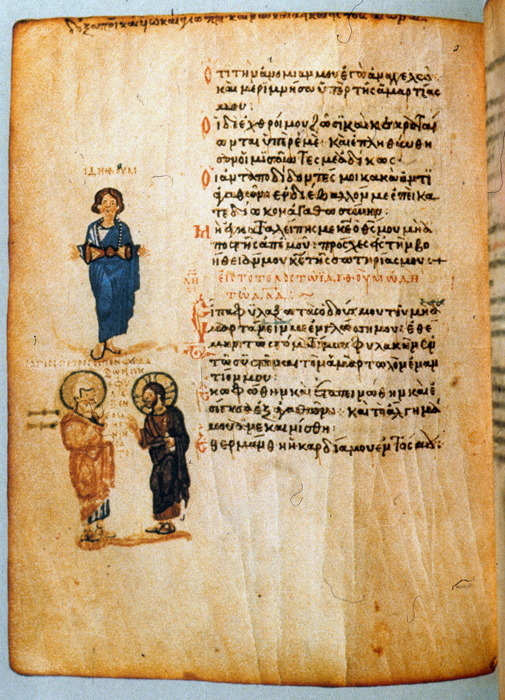 ΙΔΗΘΟΥΜ
Ὅτι τὴν ἀνομίαν μου ἐγὼ ἀναγγελῶ
καὶ μεριμνήσω ὑπὲρ τῆς ἁμαρτίας
μου:
Οἱ δὲ ἐχθροί μου ζῶσι καὶ κεκραταί
ωνται ὑπὲρ ἐμέ· καὶ ἐπληθύνθη
σαν οἱ μισοῦντές με ἀδίκως·
Οἱ ἀνταποδιδόντες μοι κακὰ ἀντὶ
ἀγαθῶν· ἐνδιέβαλλόν με ἐπεὶ κα
τεδίωκον ἀγαθωσύνην:
Μὴ ἐγκαταλείπῃς με κε ὁ θς μου μὴ ἀ
ποστῇς ἀπ' ἐμοῦ: πρόσχες εἰς τὴν βο
ήθειάν μου κε τῆς σωτηρίας μου:+
ΕΙΣ ΤΟ ΤΕΛΟΣ ΤΩ ΙΔΙΘΟΥΜ ΩΔΗ
ΤΩ ΔΑΔ:~
Εἶπα φυλάξω τὰς ὁδούς μου τοῦ μὴ
ἁμαρτάνειν με ἐν γλώσσῃ μου: ἐθέ
μην τῷ στόματί μου φυλακὴν ἐν
τῷ συστῆναι τὸν ἁμαρτωλὸν ἐναν
τίον μου:
Ἐκωφώθην καὶ ἐταπεινώθην καὶ ἐ
σίγησα ἐξ ἀγαθῶν: καὶ τὸ ἄλγημά
μου ἀνεκαινίσθη:
Ἐθερμάνθη ἡ καρδία μου ἐντός
ΑΓΙΟΣ ΠΕΤΡΟΣ